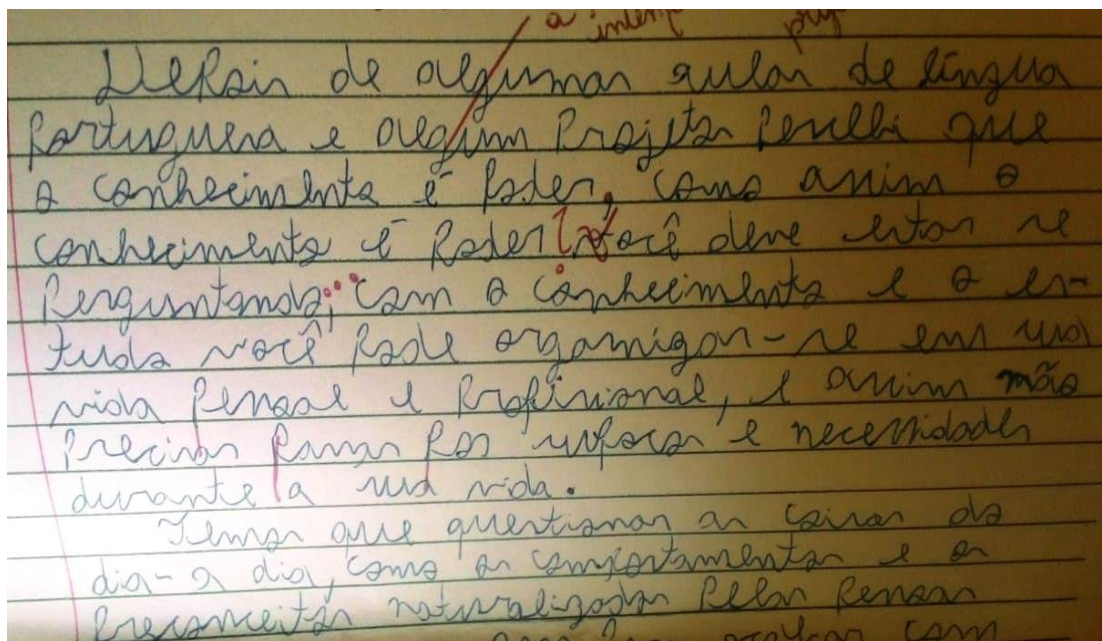 a intemp
Depois de algumas aulas de língua
portuguesa e algum Projetos Percebi que
o conhecimento é Poder, como assim o
conhecimento é Poder? você deve estar se
Perguntando; com o conhecimento e o es-
tudo você Pode organizar-se em sua
vida Pessoal e Profissional, e assim não
Precisar Passar Por sufoco e necessidades
durante a sua vida.
Temos que questionar as coisas do
dia-a dia, como os comportamentos e os
Preconceitos naturalizados Pelas Pessoas
com